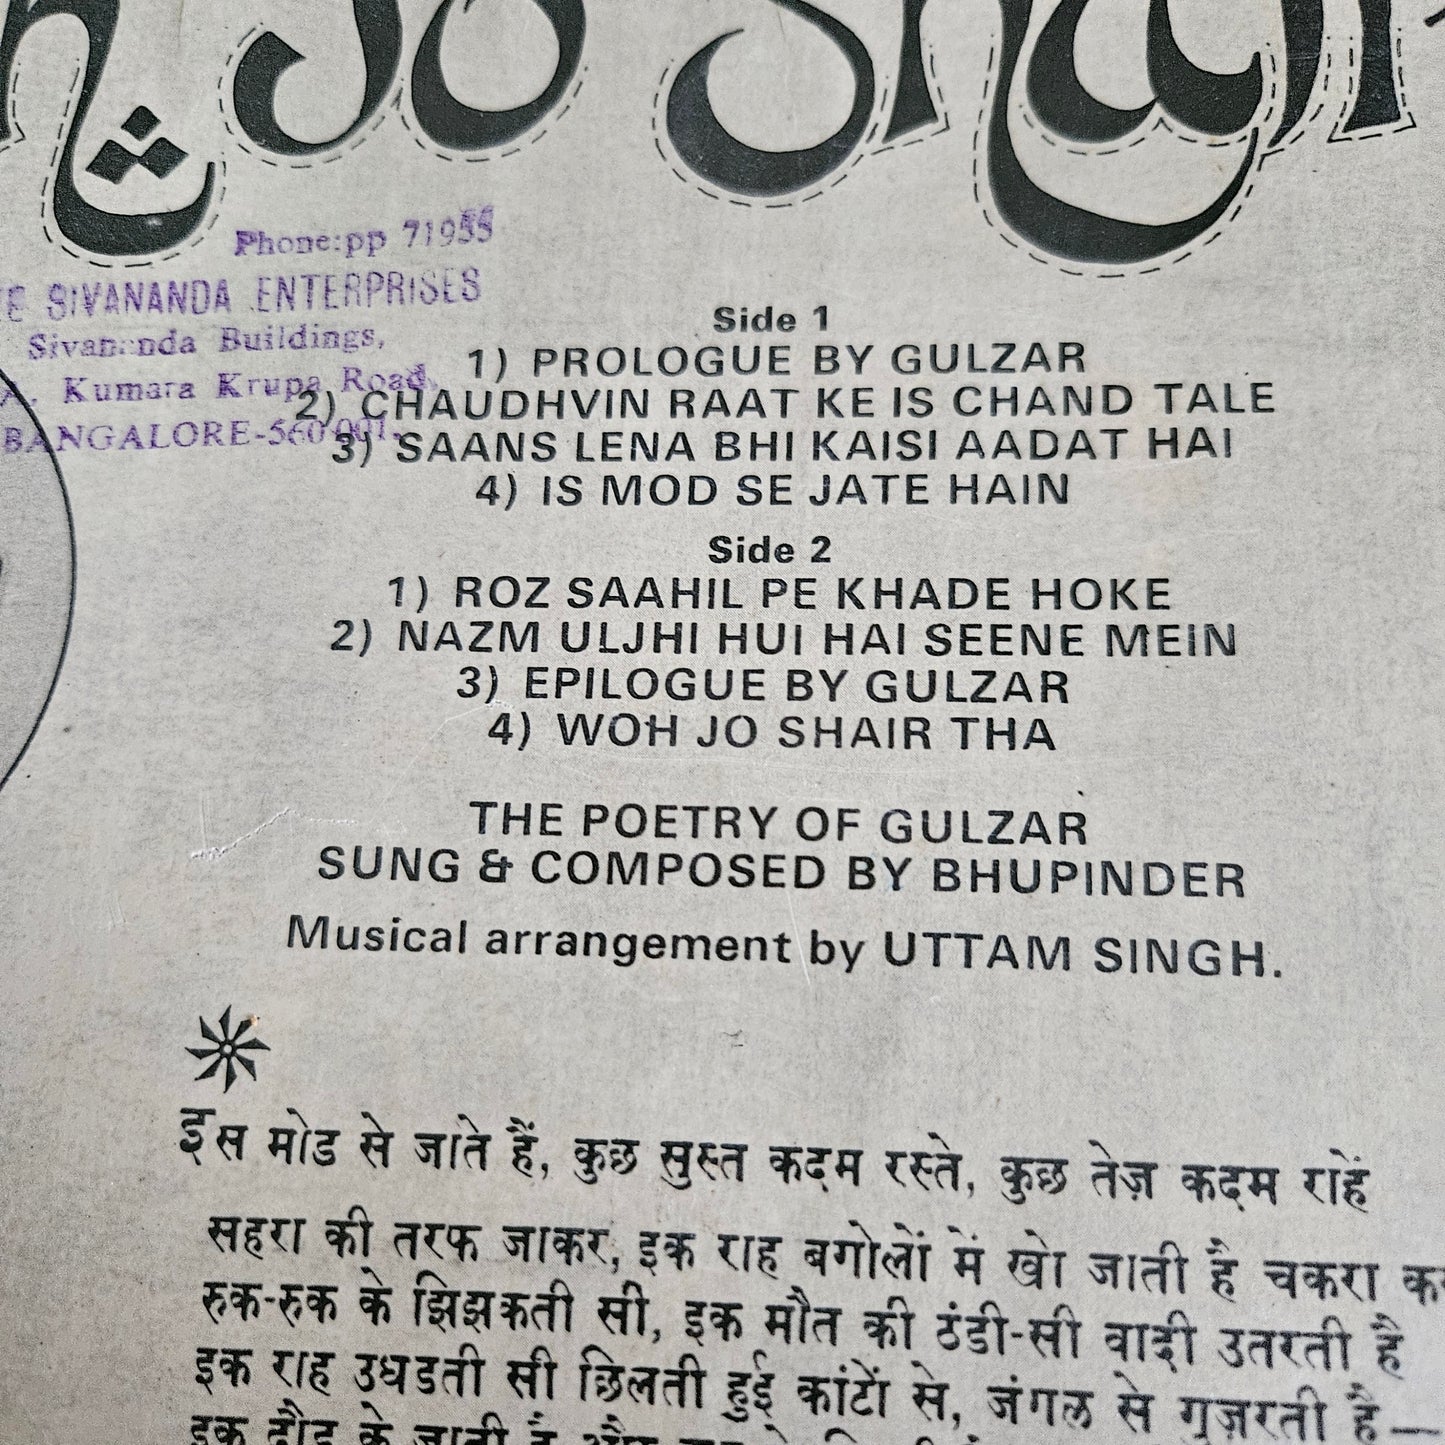 Jo Shair
Phone:pp 71955
SIVANANDA ENTERPRISES
Sivananda Buildings,
Kumara Krupa Road,
BANGALORE-560 001.
Side 1
1) PROLOGUE BY GULZAR
2) CHAUDHVIN RAAT KE IS CHAND TALE
3) SAANS LENA BHI KAISI AADAT HAI
4) IS MOD SE JATE HAIN
Side 2
1) ROZ SAAHIL PE KHADE HOKE
2) NAZM ULJHI HUI HAI SEENE MEIN
3) EPILOGUE BY GULZAR
4) WOH JO SHAIR THA
THE POETRY OF GULZAR
SUNG & COMPOSED BY BHUPINDER
Musical arrangement by UTTAM SINGH.
इस मोड से जाते हैं, कुछ सुस्त कदम रस्ते, कुछ तेज़ कदम राहें
सहरा की तरफ जाकर, इक राह बगोलों में खो जाती है चकरा
रुक-रुक के झिझकती सी, इक मौत की ठंडी-सी वादी उतरती है
इक राह उधडती सी छिलती हुई कांटों से, जंगल से गुज़रती है—
इक दौड के जाती है और